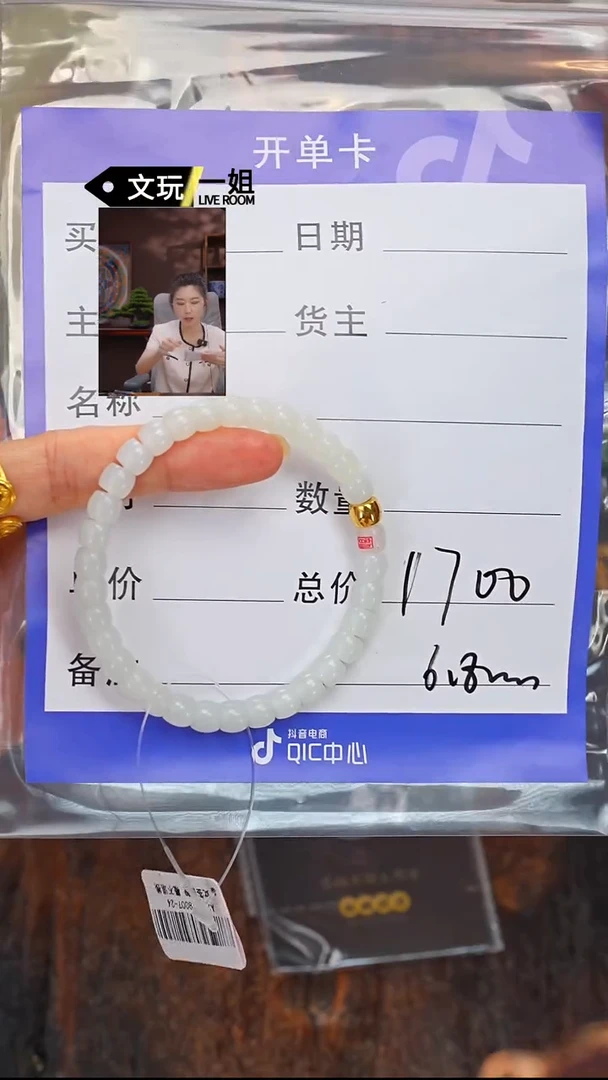 开单卡
文玩 一姐
LIVE ROOM
买
日期
主
货主
名称
数量
价
总价 1700
备 6.8mm
抖音电商
QIC中心
8007-24